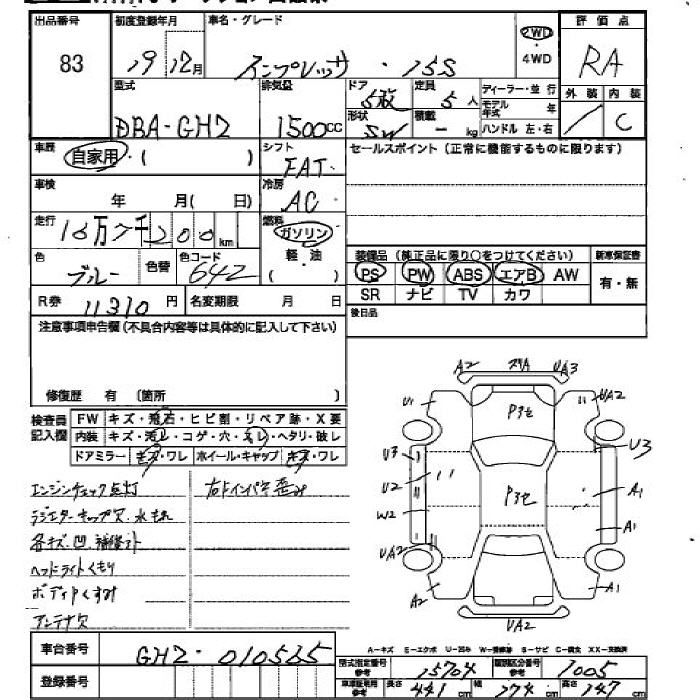 出品番号 初度登録年月 車名・グレード 2WD・4WD 評価点
83 19 12月 インプレッサ・15S RA
型式 排気量 ドア 定員 ディーラー・並行 外装 内装
DBA-GH2 1500CC 5枚 5人 モデル年式 年 / C
形状 積載 ハンドル 左・右
SW - kg
車歴 シフト セールスポイント(正常に機能するものに限ります)
自家用・( ) FAT
車検 冷房
年 月( 日) AC
走行 燃料
16万7千200km ガソリン
色 色替 色コード 軽・油
ブルー 642 ( )
装備品(純正品に限り○をつけてください) 新車保証書
PS PW ABS エアB AW 有・無
SR ナビ TV カワ
R券 11310円 名変期限 月 日 後日品
注意事項申告欄(不具合内容等は具体的に記入して下さい)
修復歴 有 [箇所 ]
検査員記入欄 FW キズ・飛石・ヒビ割・リペア跡・X要
内装 キズ・汚レ・コゲ・穴・スレ・ヘタリ・破レ
ドアミラー キズ・ワレ ホイール・キャップ キズ・ワレ
エンジンチェック点灯 右ドインパネ歪み
ラジエターキャップ欠、水もれ
各キズ、凹、補修ヶ所
ヘッドライトくもり
ボディ下くすみ
アンテナ欠
A2 スリA UA3
U1 P3セ UA2
U3 U3
U2 P3セ A1
W2 A1
UA2
A2 A1
UA2
A-キズ E-エクボ U-凹み W-補修跡 S-サビ C-腐食 XX-交換済
車台番号 GH2-010565
型式指定番号 参考 15704 類別区分番号 参考 1005
登録番号 車検証記載 参考 長さ 441cm 幅 174cm 高さ 147cm